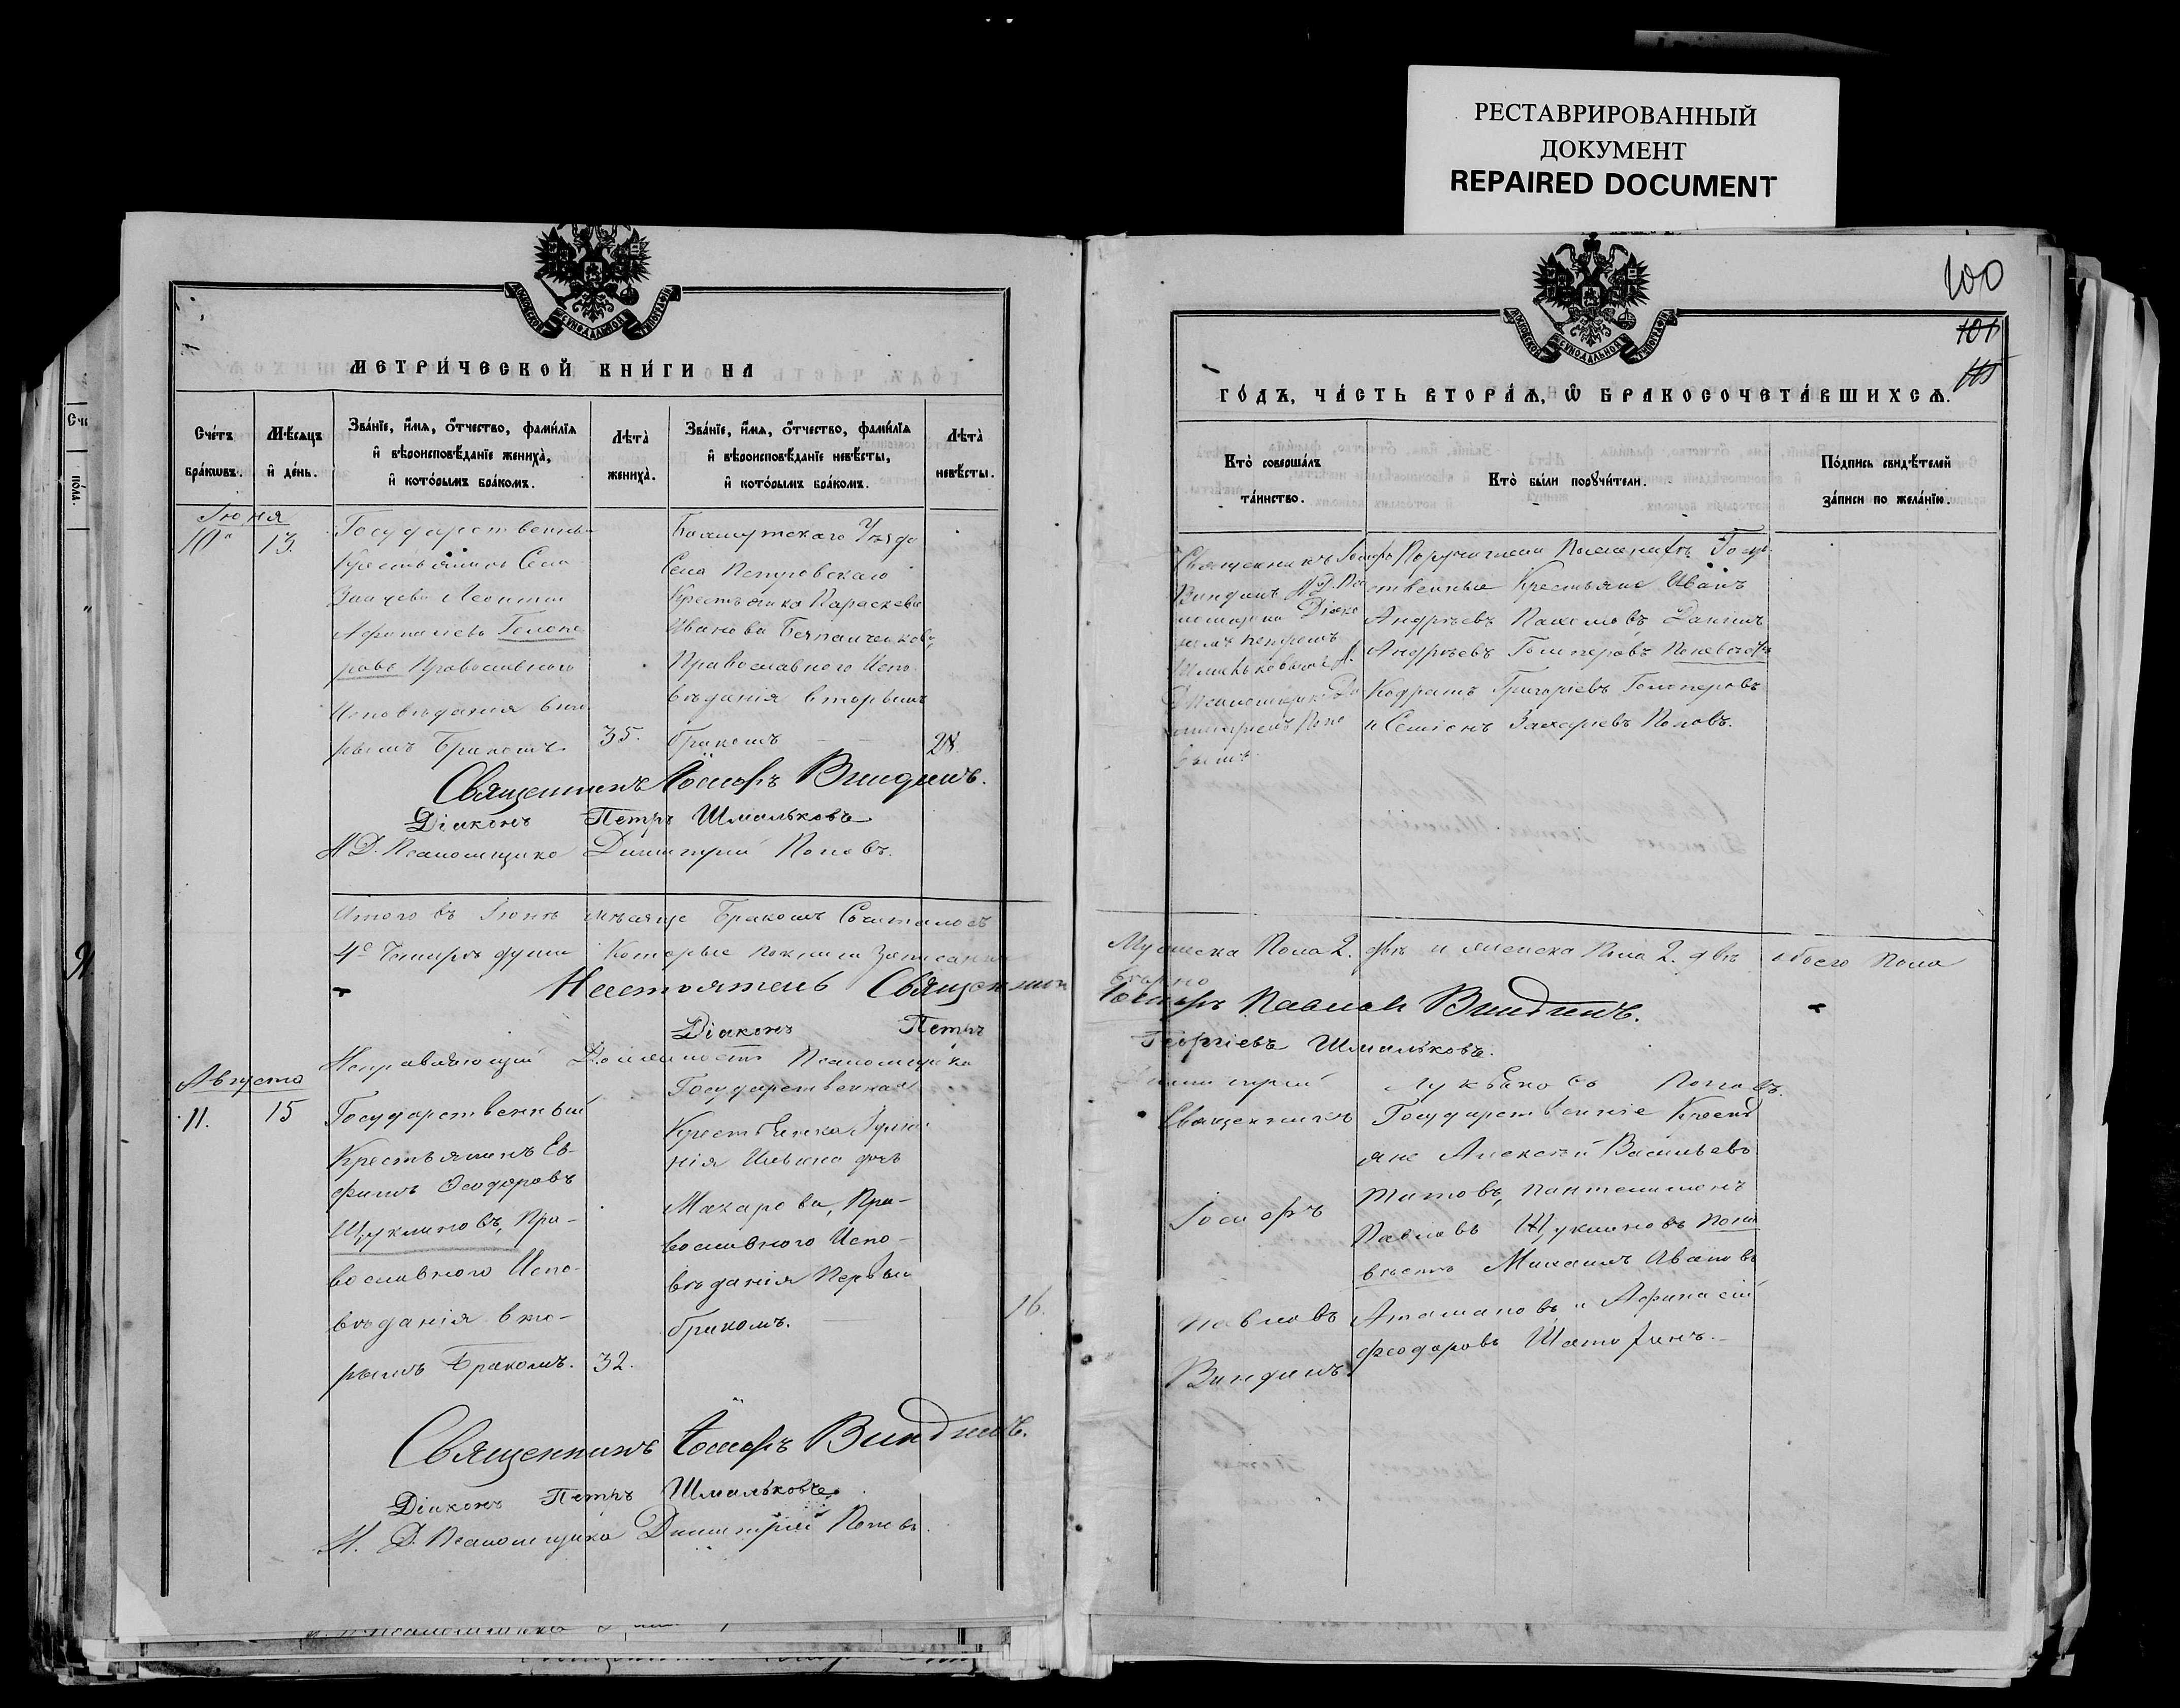 РЕСТАВРИРОВАННЫЙ
ДОКУМЕНТ
REPAIRED DOCUMENT
МЕТРИ́ЧЕСКОЙ КНИ́ГИ НА
Сче́тъ бра́кωвъ.
Мѣ́сяцъ и҆ де́нь.
Зва́нїе, и҆́мя, ѻ҆́тчество, фами́лїя и҆ вѣроисповѣ́данїе жениха̀, и҆ кото́рымъ бра́комъ.
Лѣта̀ жениха̀.
Зва́нїе, и҆́мя, ѻ҆́тчество, фами́лїя и҆ вѣроисповѣ́данїе невѣ́сты, и҆ кото́рымъ бра́комъ.
Лѣта̀ невѣ́сты.
Іюня
10
13.
Государственны
Крестьянинъ Села
Леонтій
Голопе
ровъ Православного
Исповѣданія вто
рымъ Бракомъ
35.
Бахмутскаго Уѣзда
Села Петровскаго
Крестьянка Параскева
Иванова
Православнаго Испо
вѣданія вторымъ
бракомъ
28
Священникъ Іосифъ Виндинъ.
Діаконъ Петръ Шмальковъ
И.Д. Псаломщика Димитрій Поповъ.
Итого въ Іюнѣ мѣсяце Бракомъ Сочеталось
4е Четыре души Которые
Настоятель Священник
Діаконъ Петръ
Исправляющій Должность Псаломщика
Августа
11.
15
Государственный
Крестьянинъ Ев-
фимъ Феодоровъ
Щукликовъ, Пра-
вославного Испо-
вѣданія вто-
рымъ Бракомъ.
32.
Государственная
Крестьянка
нія Ильина дочь
Макарова, Пра-
вославного Испо-
вѣданія Первым
бракомъ.
16.
Священникъ Іосифъ Виндинъ.
Діаконъ Петръ Шмальковъ
И. Д. Псаломщика Димитрій Поповъ.
100
101
115
ГО́ДЪ, ЧА́СТЬ ВТОРА́Я, Ѽ БРАКОСОЧЕТА́ВШИХСЯ.
Кто̀ соверша́лъ та́инство.
Кто̀ бы́ли порꙋчи́тели.
По́дпись свидѣ́телей за́писи по жела́нїю.
Священникъ Іосифъ
Виндинъ И.Д. Пса
Діако
номъ Петромъ
Шмальковымъ И.
Д Псаломщика Ди
митріемъ Попо
вымъ
Поручители По женихѣ Госуда
ственные Крестьяне Иванъ
Андрѣевъ Пахомовъ Даніилъ
Андрѣевъ Голоперовъ По невѣстѣ
Кодратъ Григоріевъ Голоперовъ
и Семіонъ Захаріевъ Поповъ.
Мужеска Пола 2. двѣ и женска Пола 2. двѣ обоего Пола
вѣрно
Іосифъ Павловъ Виндинъ.
Георгіевъ Шмальковъ.
Димитрій Лукьяновъ Поповъ.
Священникъ
Іосифъ
Павловъ
Виндинъ
Государственніе Кресть
яне Алексѣй Васильевъ
Титовъ, Пантелимонъ
Павловъ Щукликовъ По не
вѣстѣ Михаилъ Ивановъ
Атамановъ и Афанасій
Феодоровъ Шатохинъ.